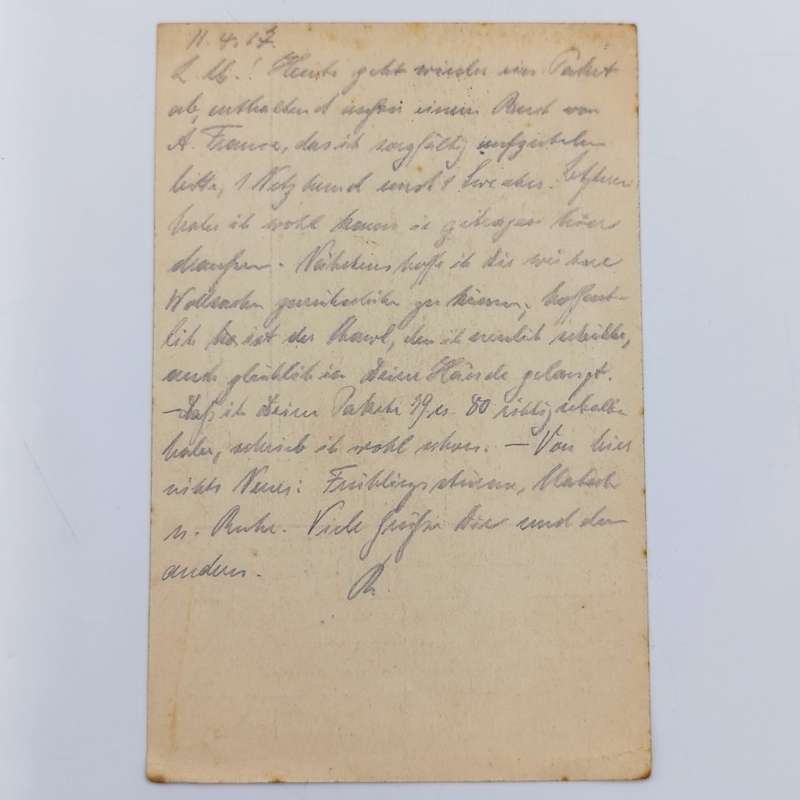 11.4.17.
L. M.! Heute geht wieder ein Paket
ab, enthaltend außer einem Band von
A. France, das ich sorgfältig aufzuheben
bitte, 1 Netzhemd und 1 Sweater. Letzteren
habe ich wohl kaum je getragen hier
draußen. Nächstens hoffe ich Dir weitere
Wollsachen zurückschicken zu können; hoffent-
lich ist der Shawl, den ich neulich schickte,
auch glücklich in Deine Hände gelangt.
– Daß ich Deine Pakete 79 u. 80 richtig erhalten
habe, schrieb ich wohl schon. – Von hier
nichts Neues: Frühlingsstürme, Matsch
u. Ruhe. Viele Grüße Dir und den
andern.
R.